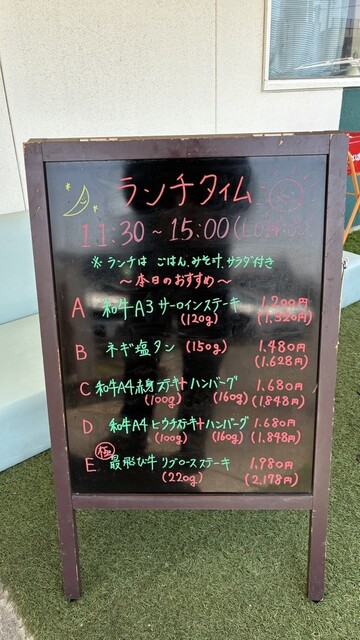 ランチタイム
11:30～15:00(LO
※ランチは ごはん、みそ汁、サラダ付き
～本日のおすすめ～
A 和牛A3 サーロインステーキ 1,200円
(120g) (1,320円)
B ネギ塩タン (150g) 1,480円
(1,628円)
C 和牛A4赤身ステーキ+ハンバーグ 1,680円
(100g) (160g) (1,848円)
D 和牛A4 ヒウチステーキ+ハンバーグ 1,680円
(100g) (160g) (1,848円)
E 極 飛び牛 リブロースステーキ 1,980円
(220g) (2,178円)